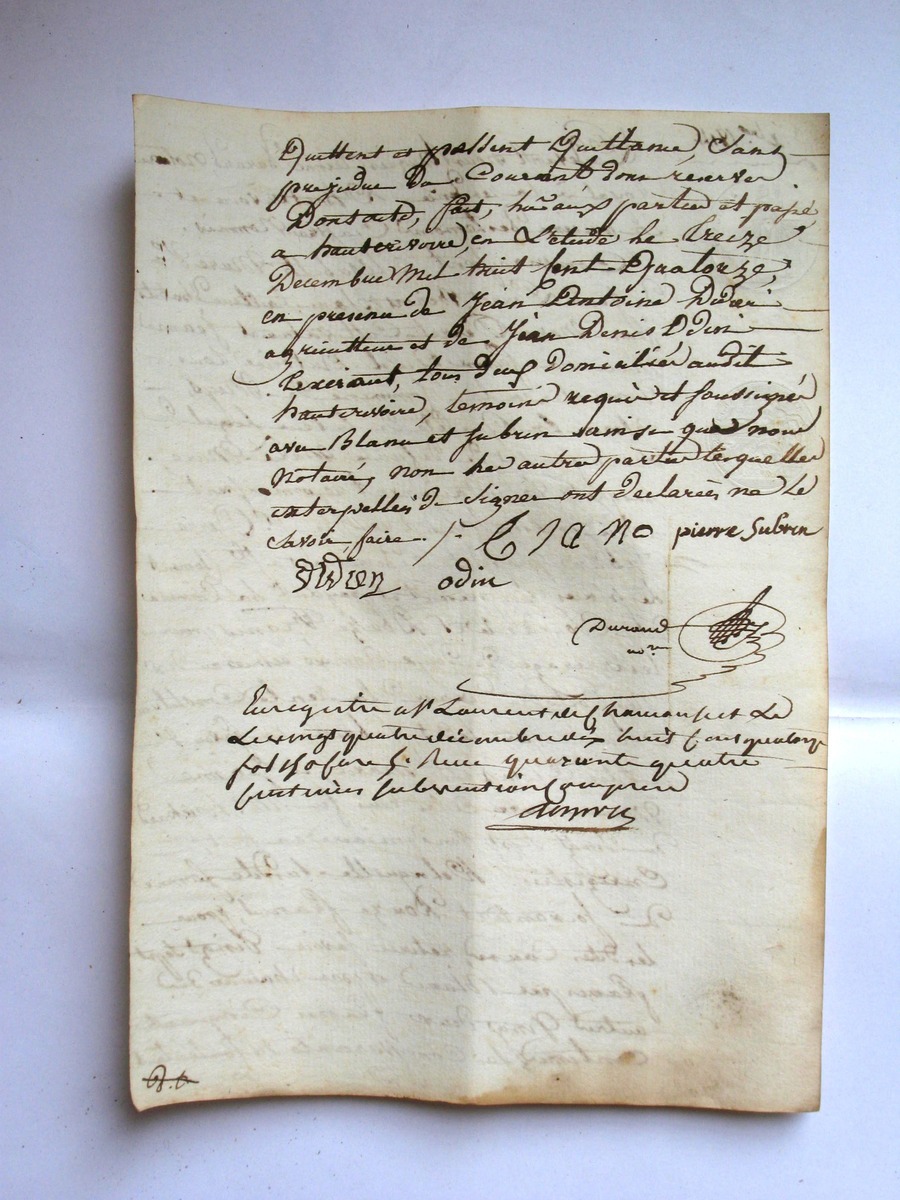 Quittent et passent Quittance, Sans
prejudice du Courant dont reserve
Dont acte, fait, lu aux parties et passé,
a hauterivoire, en L'etude le treize
Decembre Mil huit Cent Quatorze,
en presence de Jean Antoine
agriculteur et de Jean Denis Odin
tous deux domiciliés audit
hauterivoire, temoins requis et soussignés
avec Blanc et Subrin ainsi que nous
Notaire, non les autres parties lesquelles
interpellées de signer ont declarées ne le
Savoir faire ./.
Blanc pierre Subrin
odin
Durand
nore
Enregistré a St Laurent de Chamousset Le
Le vingt quatre décembre dix huit Cent quatorze
fol 150 Reçu quarante quatre
centimes subvention Comprise